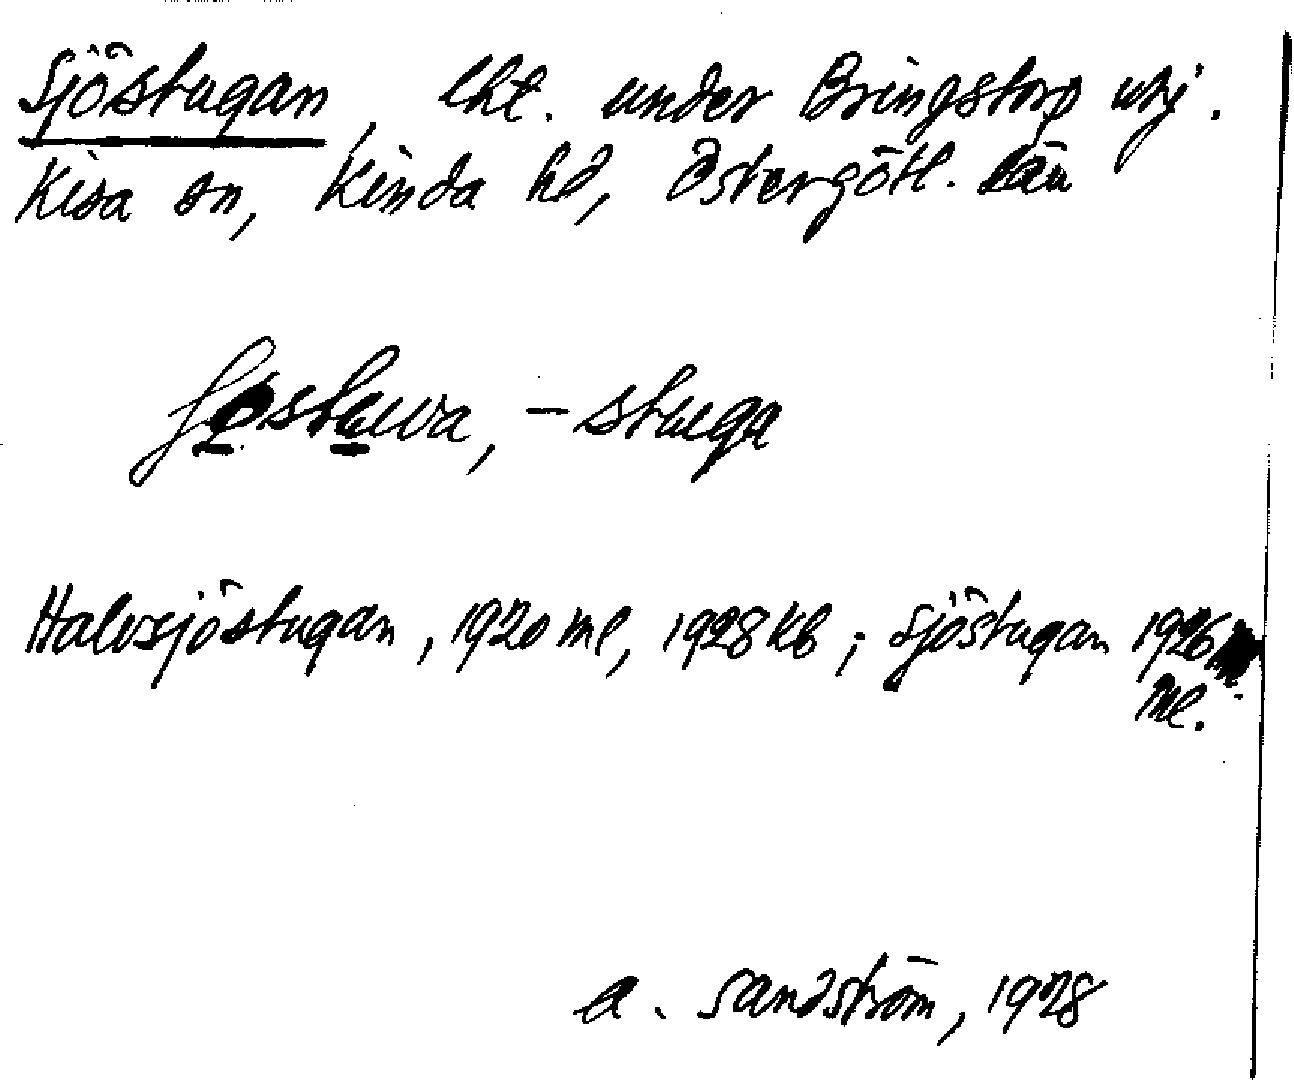 Sjöstugan, lht. under Bringstorp utj.
Kisa sn, Kinda hd, Östergötl. län
-stuga
Halvsjöstugan, 1920 ml, 1928 kb; Sjöstugan 1926
ml.
A. Sandström, 1928